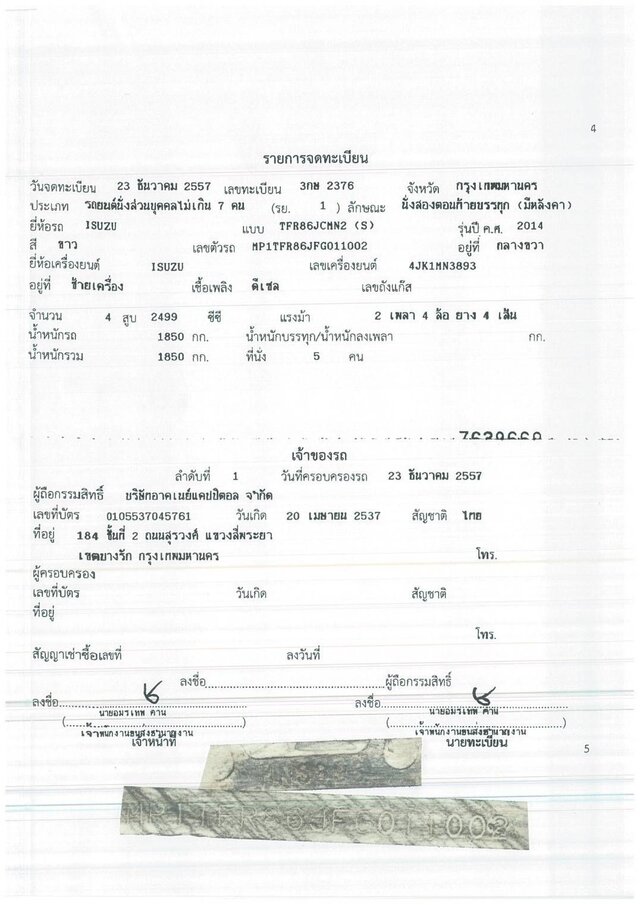 4
รายการจดทะเบียน
วันจดทะเบียน 23 ธันวาคม 2557 เลขทะเบียน 3กษ 2376 จังหวัด กรุงเทพมหานคร
ประเภท รถยนต์นั่งส่วนบุคคลไม่เกิน 7 คน (รย. 1 ) ลักษณะ นั่งสองตอนท้ายบรรทุก (มีหลังคา)
ยี่ห้อรถ ISUZU แบบ TFR86JCMN2 (S) รุ่นปี ค.ศ. 2014
สี ขาว เลขตัวรถ MP1TFR86JFG011002 อยู่ที่ กลางขวา
ยี่ห้อเครื่องยนต์ ISUZU เลขเครื่องยนต์ 4JK1MN3893
อยู่ที่ ซ้ายเครื่อง เชื้อเพลิง ดีเซล เลขถังแก๊ส
จำนวน 4 สูบ 2499 ซีซี แรงม้า 2 เพลา 4 ล้อ ยาง 4 เส้น
น้ำหนักรถ 1850 กก. น้ำหนักบรรทุก/น้ำหนักลงเพลา กก.
น้ำหนักรวม 1850 กก. ที่นั่ง 5 คน
เจ้าของรถ
ลำดับที่ 1 วันที่ครอบครองรถ 23 ธันวาคม 2557
ผู้ถือกรรมสิทธิ์ บริษัทอาคเนย์แคปปิตอล จำกัด
เลขที่บัตร 0105537045761 วันเกิด 20 เมษายน 2537 สัญชาติ ไทย
ที่อยู่ 184 ชั้นที่ 2 ถนนสุรวงศ์ แขวงสี่พระยา
เขตบางรัก กรุงเทพมหานคร โทร.
ผู้ครอบครอง
เลขที่บัตร วันเกิด สัญชาติ
ที่อยู่
โทร.
สัญญาเช่าซื้อเลขที่ ลงวันที่
ลงชื่อ ผู้ถือกรรมสิทธิ์
ลงชื่อ ลงชื่อ
นายอมรเทพ คาน นายอมรเทพ คาน
เจ้าพนักงานขนส่งชำนาญงาน เจ้าพนักงานขนส่งชำนาญงาน
เจ้าหน้าที่ นายทะเบียน
5
MP1TFR86JFG011002